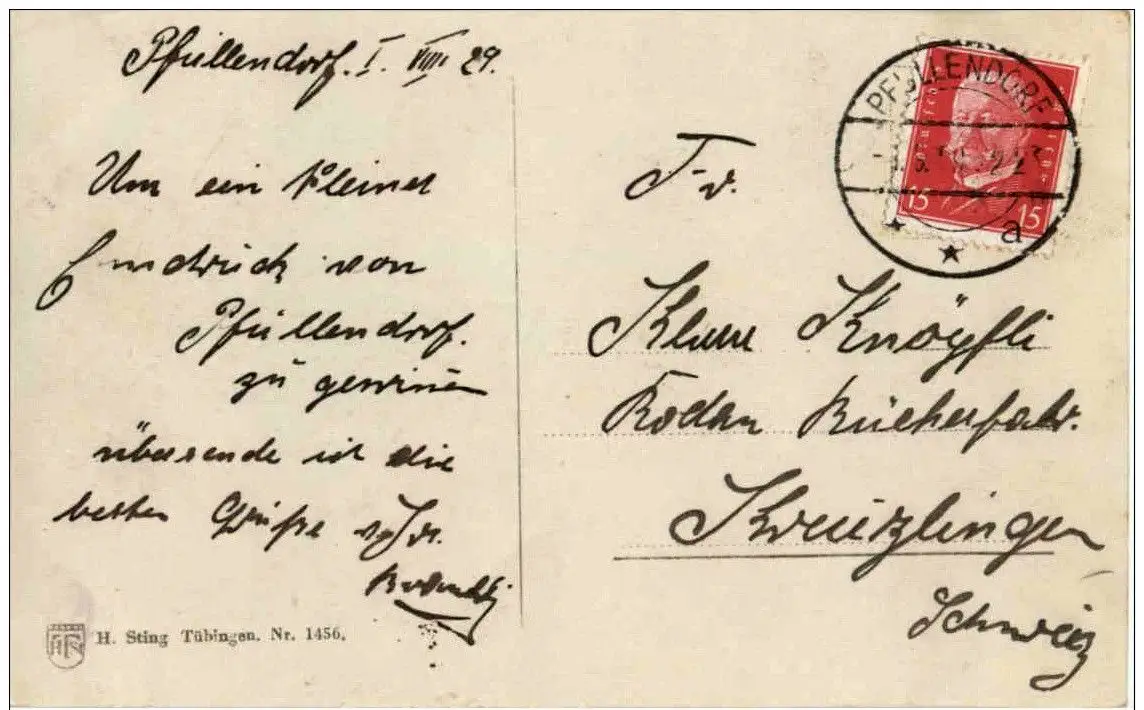 Pfullendorf. I. VIII 29.
Um ein kleinen
Eindruck von
Pfullendorf.
zu gewinnen
übersende ich die
besten Grüße v. Ihr.
H. Sting Tübingen. Nr. 1456.
PFULLENDORF
a
Deutsches Reich
15 15
Frl.
Knöpfli
Rodan Bücherfabr.
Kreuzlingen
Schweiz